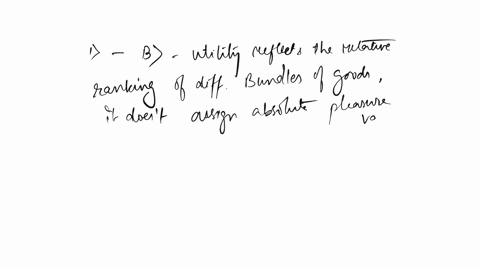 1) - B) - utility reflects the relative
ranking of diff. Bundles of goods,
it does't assign absolute pleasure
va